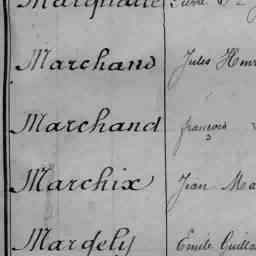 Marchand Jules Hen
Marchand françois
Marchix Jean Ma
Margely Emile Guill